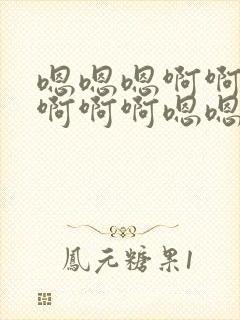 嗯嗯嗯啊啊
啊啊啊嗯嗯
鳳元糖果1